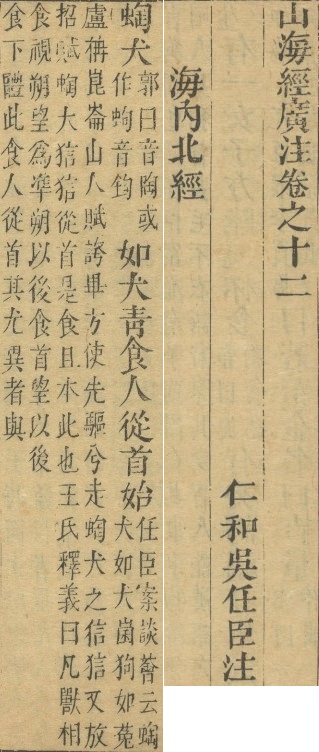 山海經廣注卷之十二
仁和吳任臣注
海內北經
蜪犬郭曰音陶或作蚼音鈞如犬青食人從首始任臣案談薈云蜪犬如犬菌狗如菟
盧柟崑崙山人賦誇畢方使先驅兮走蜪犬之信信又放
招賦蜪犬狺狺從首是食且本此也王氏釋義曰凡獸相
食視朔望為準朔以後食首望以後
食下體此食人從首其尤異者與